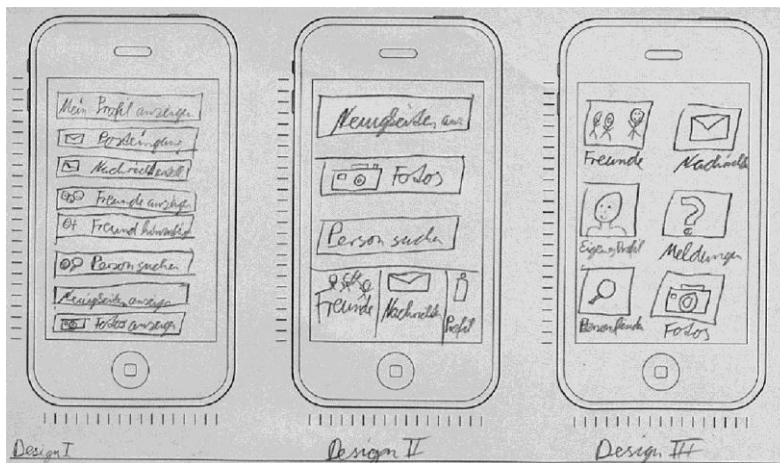 Mein Profil anzeigen
Posteingang
Freunde anzeigen
Person suchen
Neuigkeiten anzeigen
Fotos anzeigen
Design I
Neuigkeiten anz
Fotos
Person suchen
Freunde
Nachrichten
Profil
Design II
Freunde
Nachricht
Eigenes Profil
Meldungen
Fotos
Design III